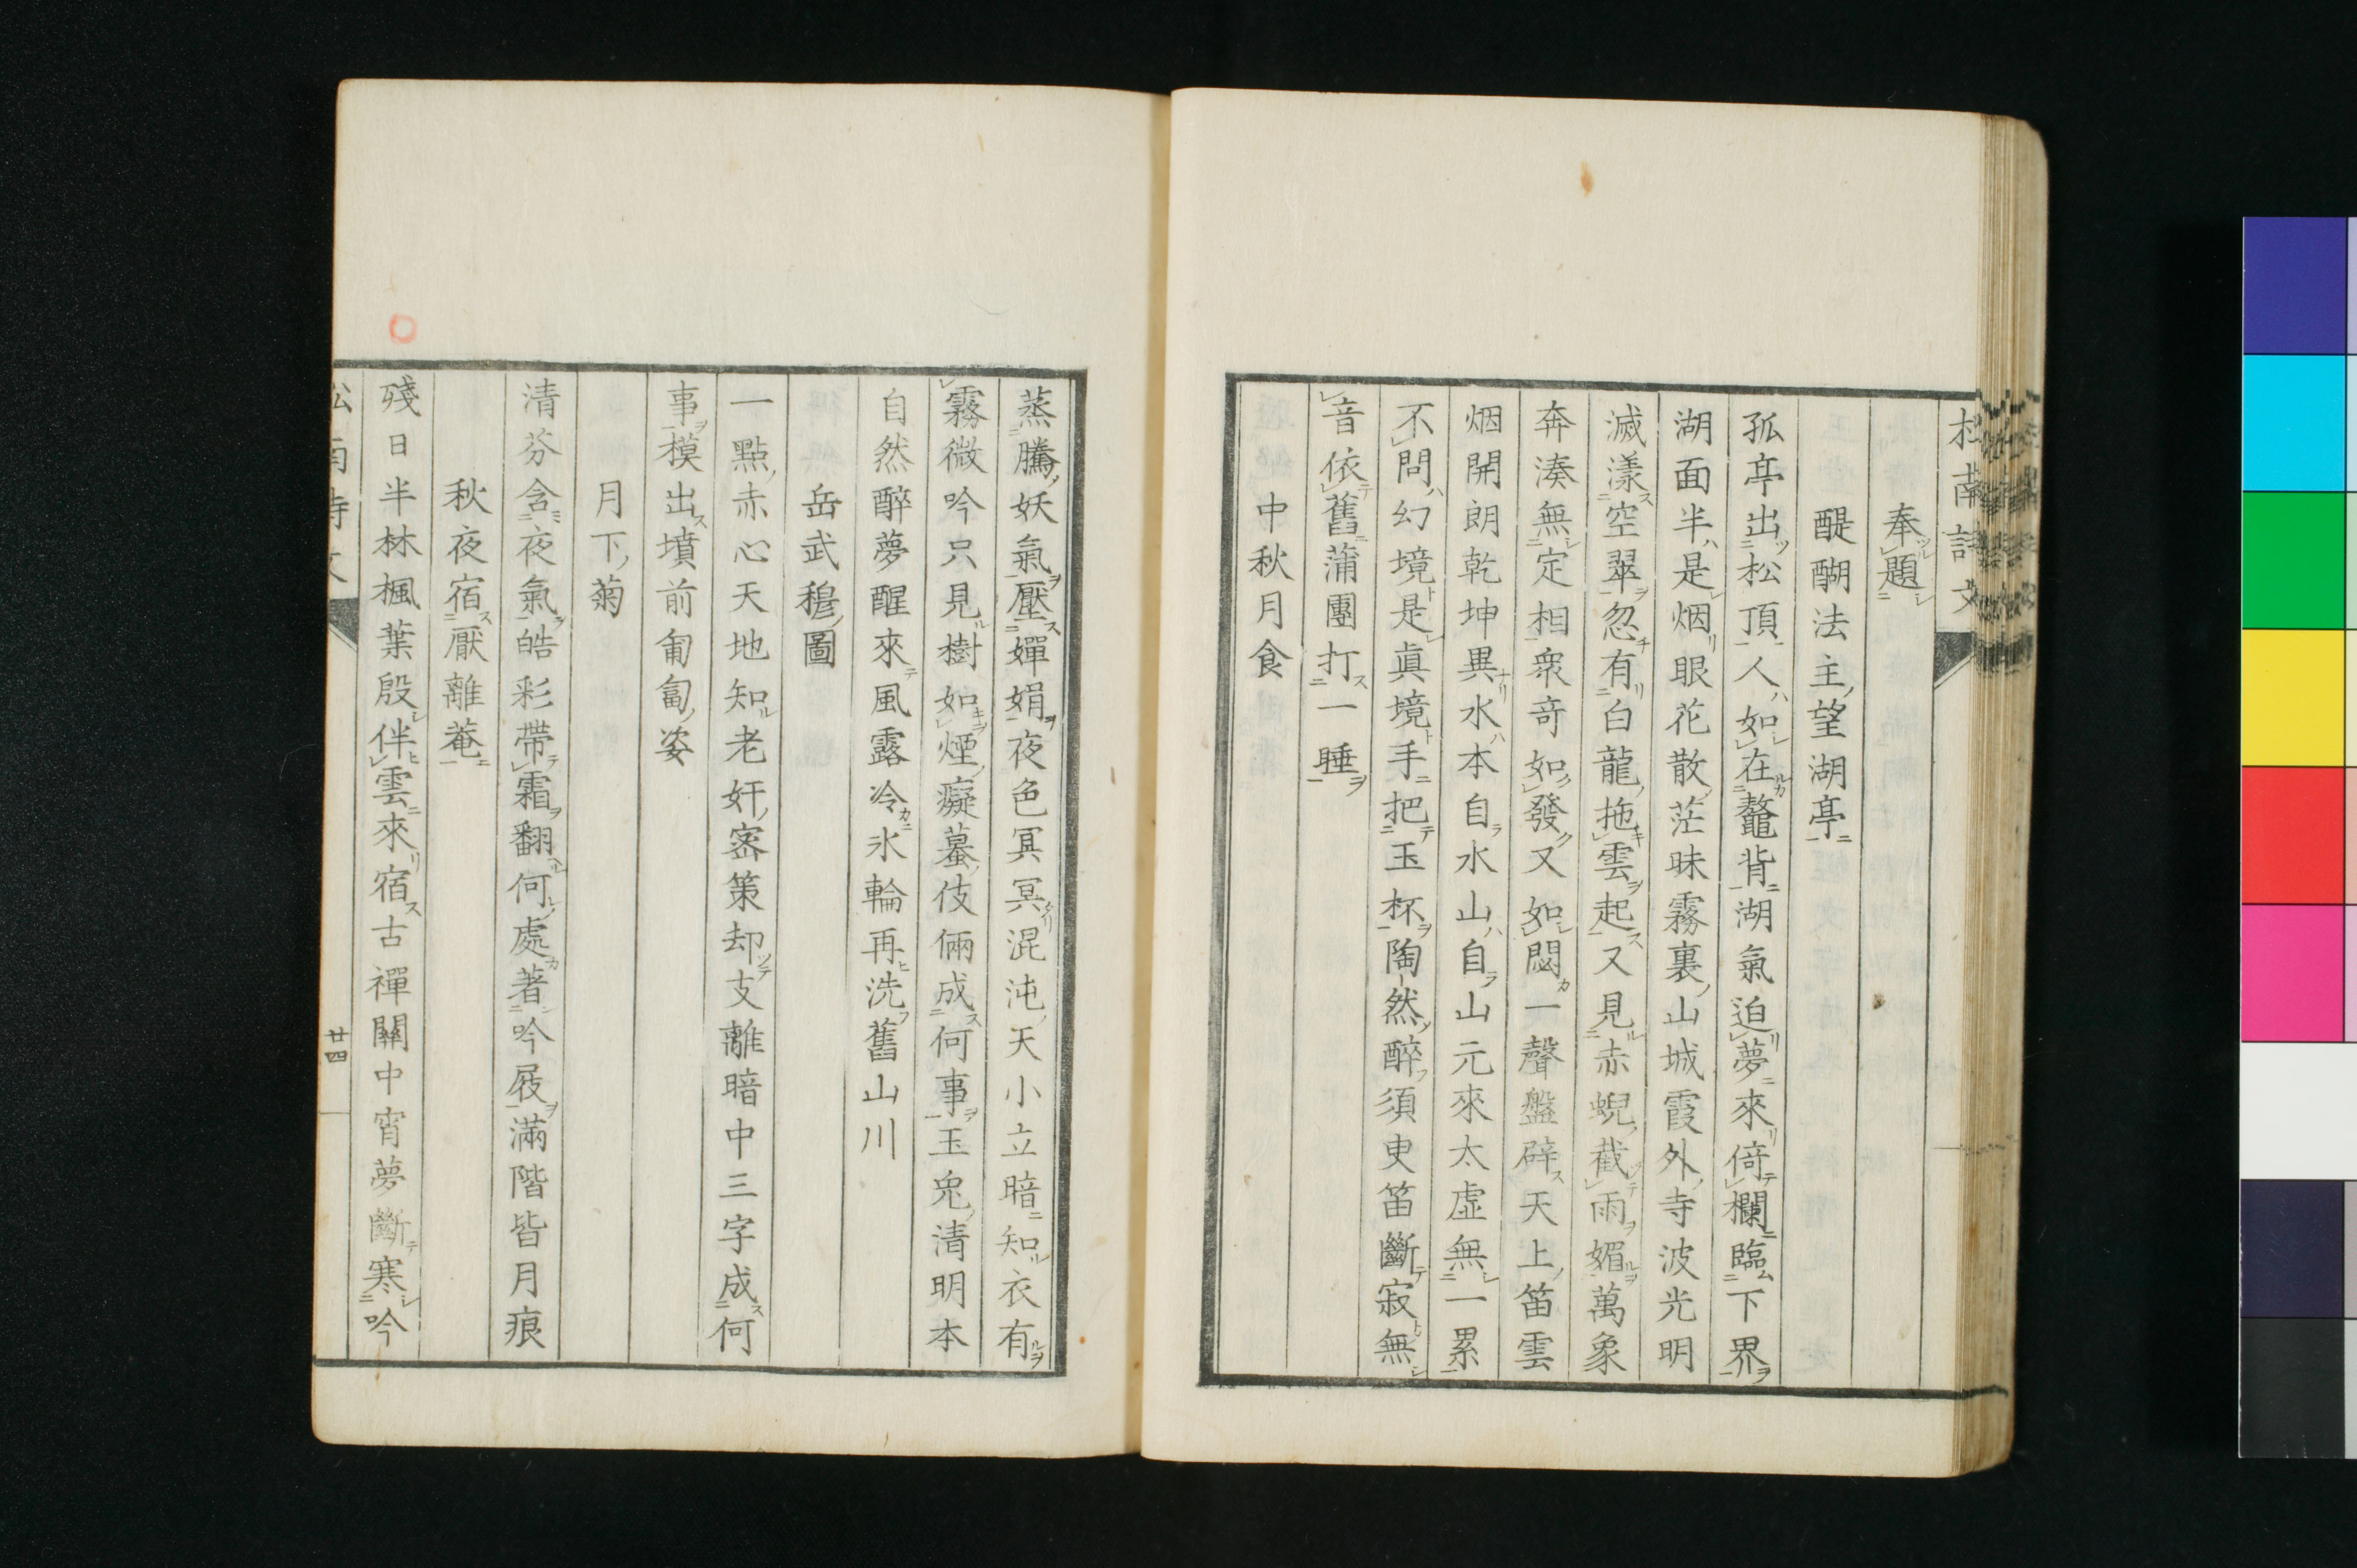 奉題
醍醐法主望湖亭
孤亭出松頂人如在鼇背湖氣迫夢來倚欄臨下界
湖面半是烟眼花散茫昧霧裏山城霞外寺波光明
滅漾空翠忽有白龍拖雲起又見赤蜺截雨媚萬象
奔湊無定相衆奇如發又如悶一聲盤辟天上笛雲
烟開朗乾坤異水本自水山自山元來太虛無一累
不問幻境是眞境手把玉杯陶然醉須臾笛斷寂無
音依舊蒲團打一睡
中秋月食
蒸騰妖氣壓嬋娟夜色冥冥混沌天小立暗知衣有
霧微吟只見樹如煙癡蟇伎倆成何事玉兎清明本
自然醉夢醒來風露冷氷輪再洗舊山川
岳武穆圖
一點赤心天地知老奸密策却支離暗中三字成何
事模出墳前匍匐姿
月下菊
清芬含夜氣皓彩帶霜翻何處著吟屐滿階皆月痕
秋夜宿厭離菴
殘日半林楓葉殷伴雲來宿古禪關中宵夢斷寒吟
廿四